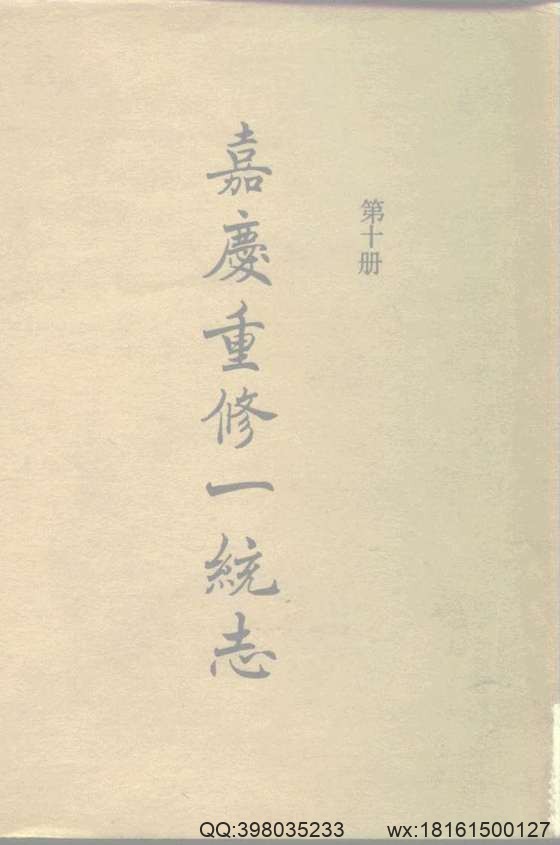 嘉慶重修一統志
第十册
QQ:398035233 wx:18161500127